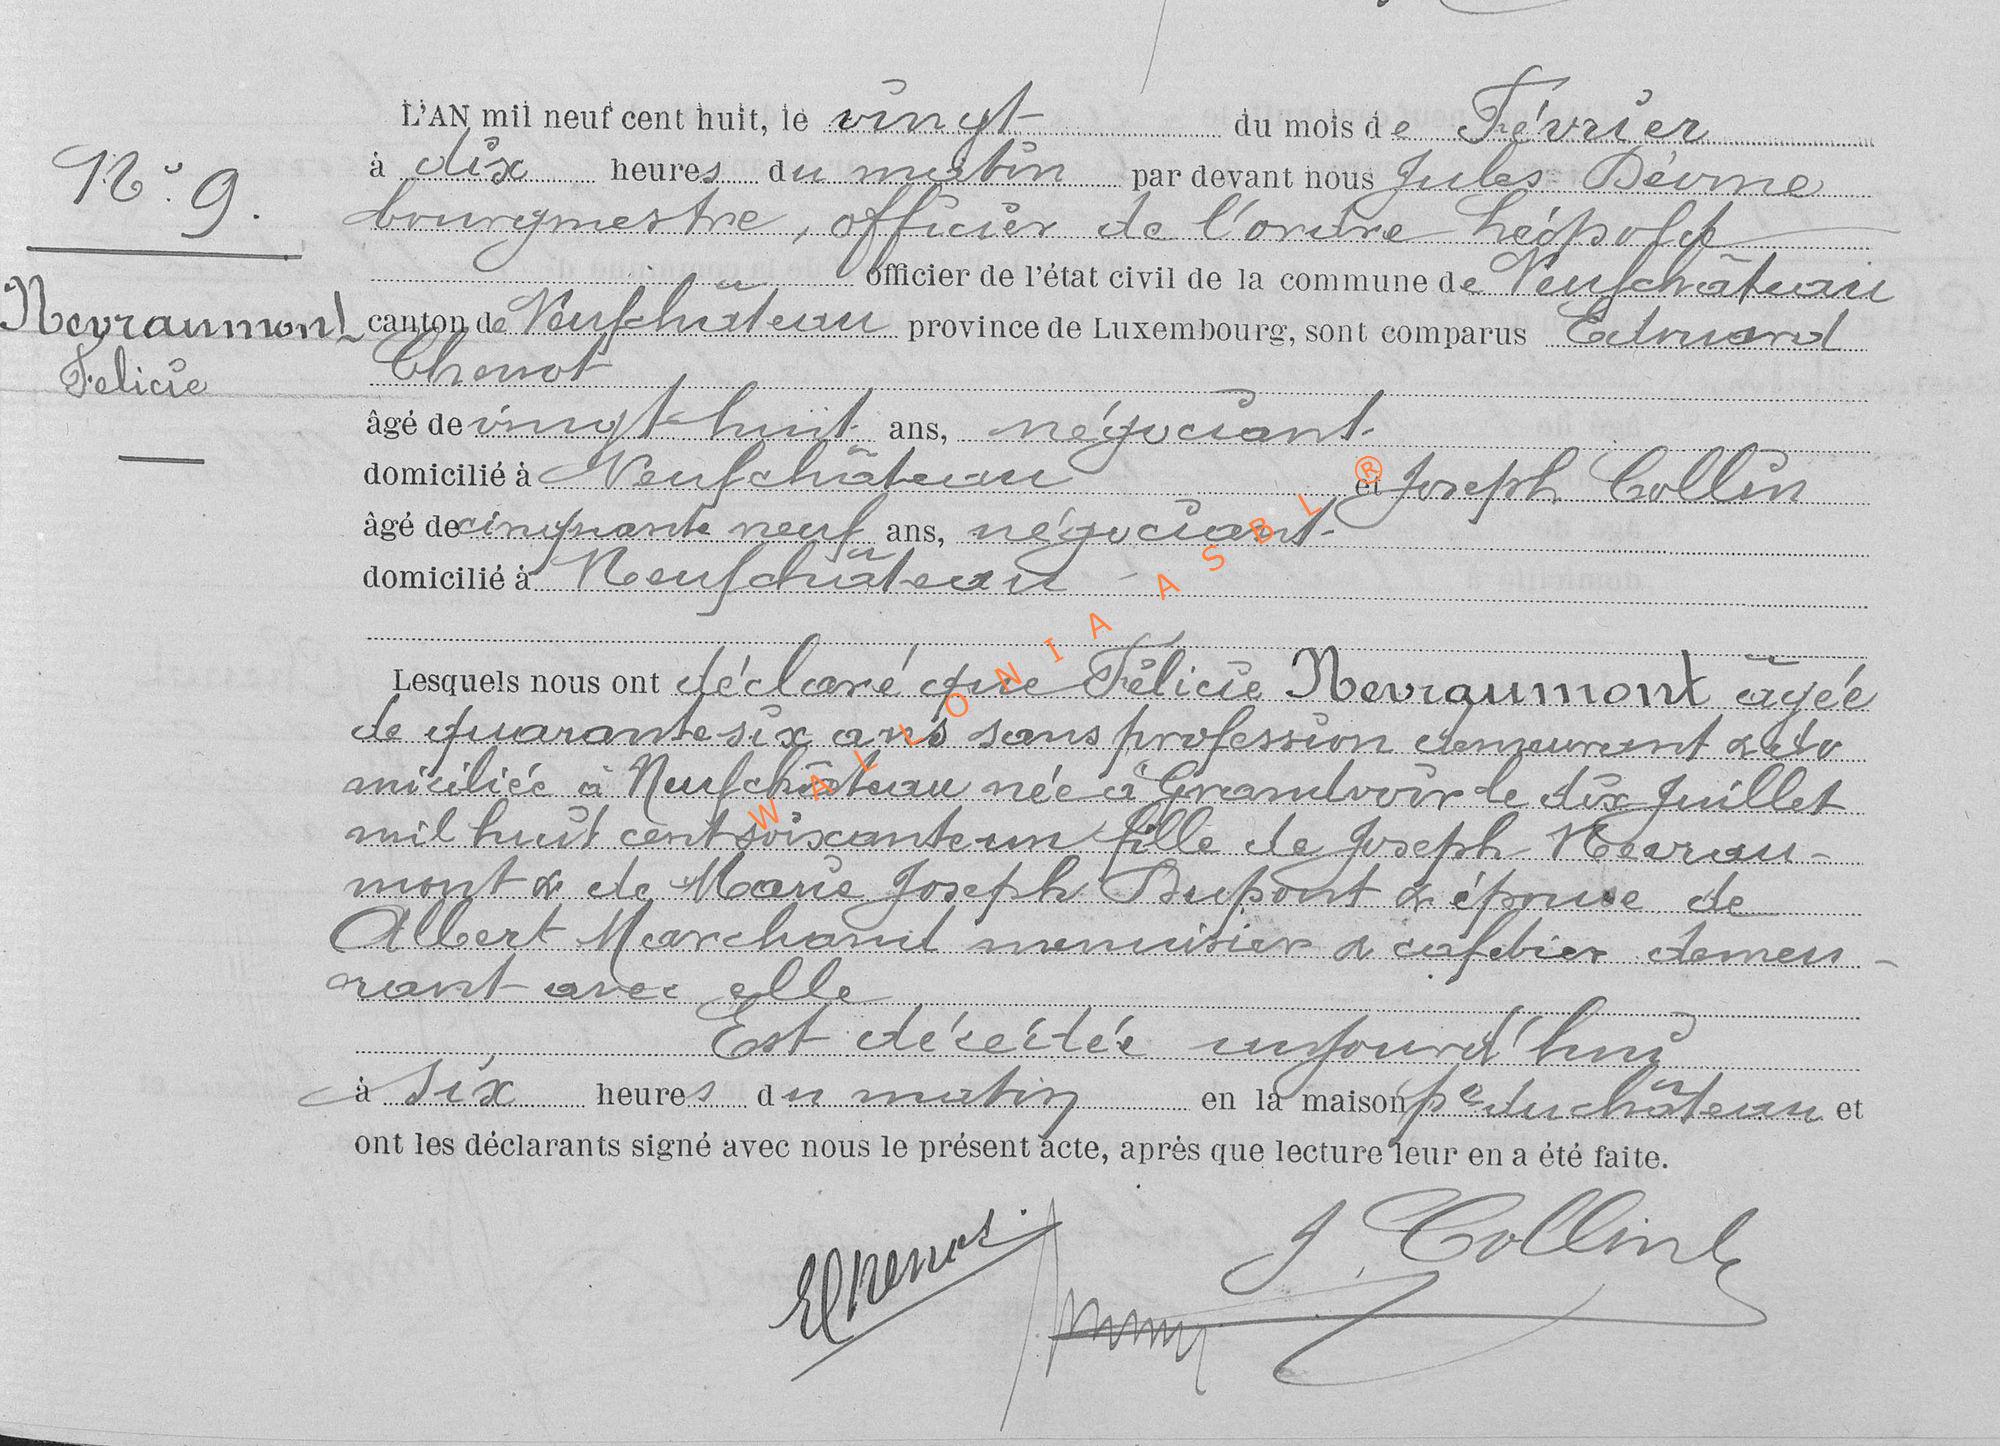 L'AN mil neuf cent huit, le vingt du mois de Février
N° 9.
à dix heures du matin par devant nous Jules
bourgmestre, officier de l'ordre Léopold
officier de l'état civil de la commune de Neufchâteau
Nevraumont
Felicie
canton de Neufchâteau province de Luxembourg, sont comparus Edouard
Chenot
âgé de vingt-huit ans, négociant
domicilié à Neufchâteau et Joseph Collin
âgé de cinquante neuf ans, négociant
domicilié à Neufchâteau
Lesquels nous ont déclaré que Félicie Nevraumont âgée
de quarante six ans sans profession demeurant & do
miciliée à Neufchâteau née à Grandvoir le dix Juillet
mil huit cent soixante un fille de Joseph Nevrau-
mont & de Marie Joseph Dupont & épouse de
Albert Marchand menuisier & cafetier demeu-
rant avec elle
Est décédée aujourd'hui
à six heures du matin en la maison pce du château et
ont les déclarants signé avec nous le présent acte, après que lecture leur en a été faite.
EChenot
J. Collin
WALLONIA ASBL ®